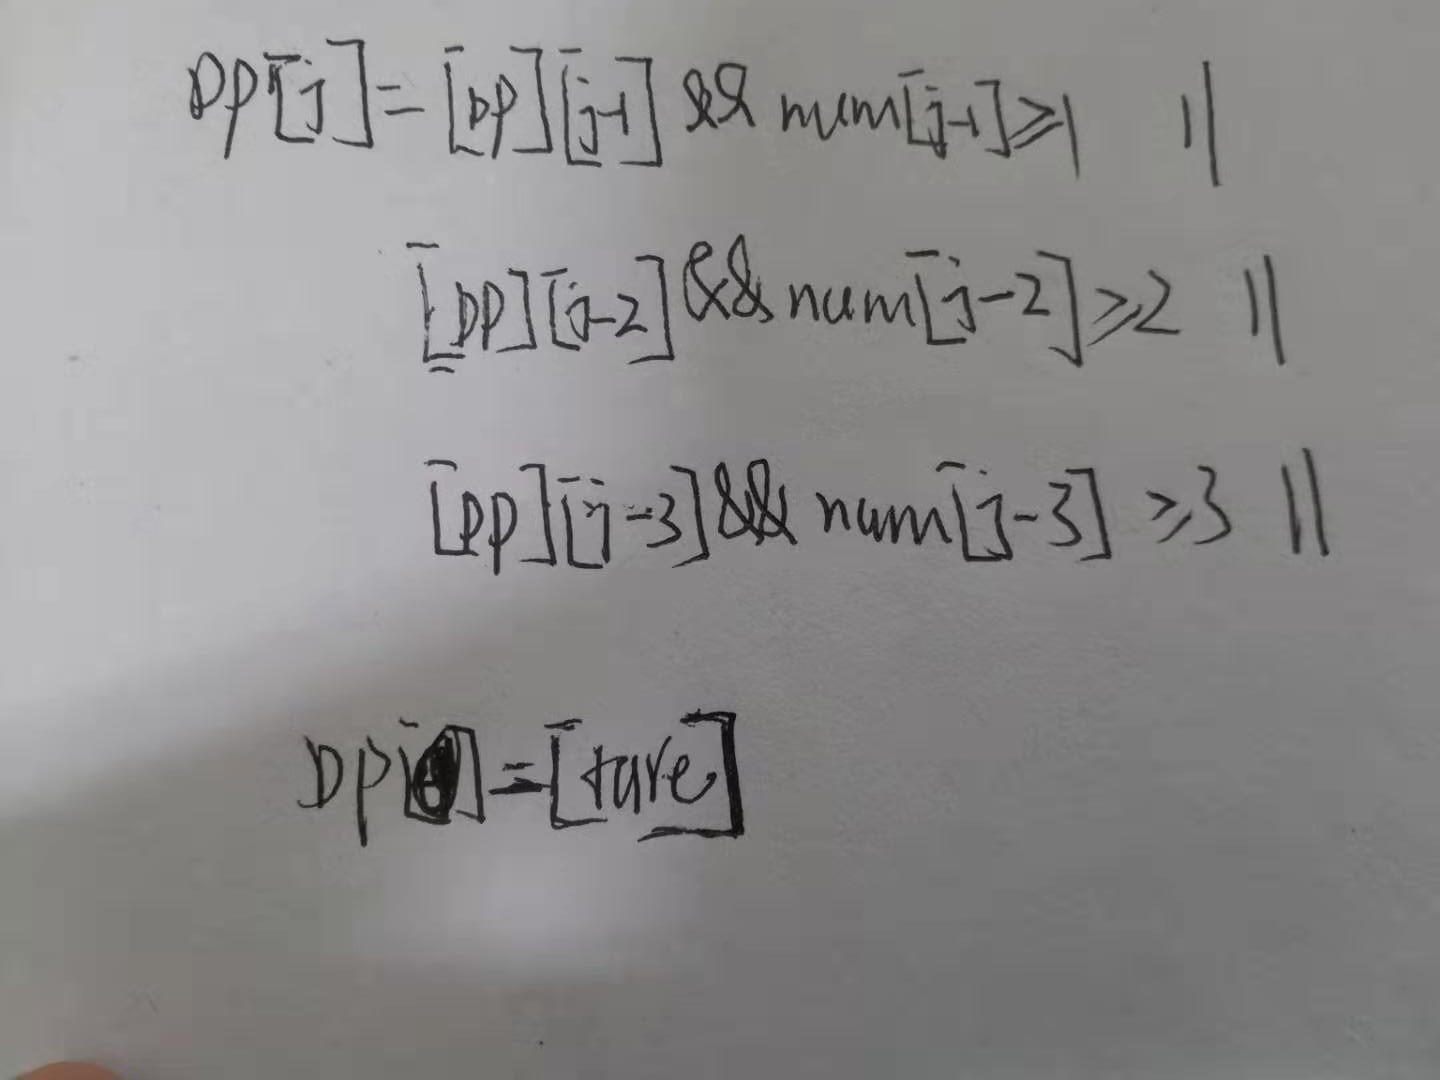 DP[j]=[DP][j-1] && num[j-1]≥1 ||
[DP][j-2] && num[j-2]≥2 ||
[DP][j-3] && num[j-3]≥3 ||
DP[0]=[ture]